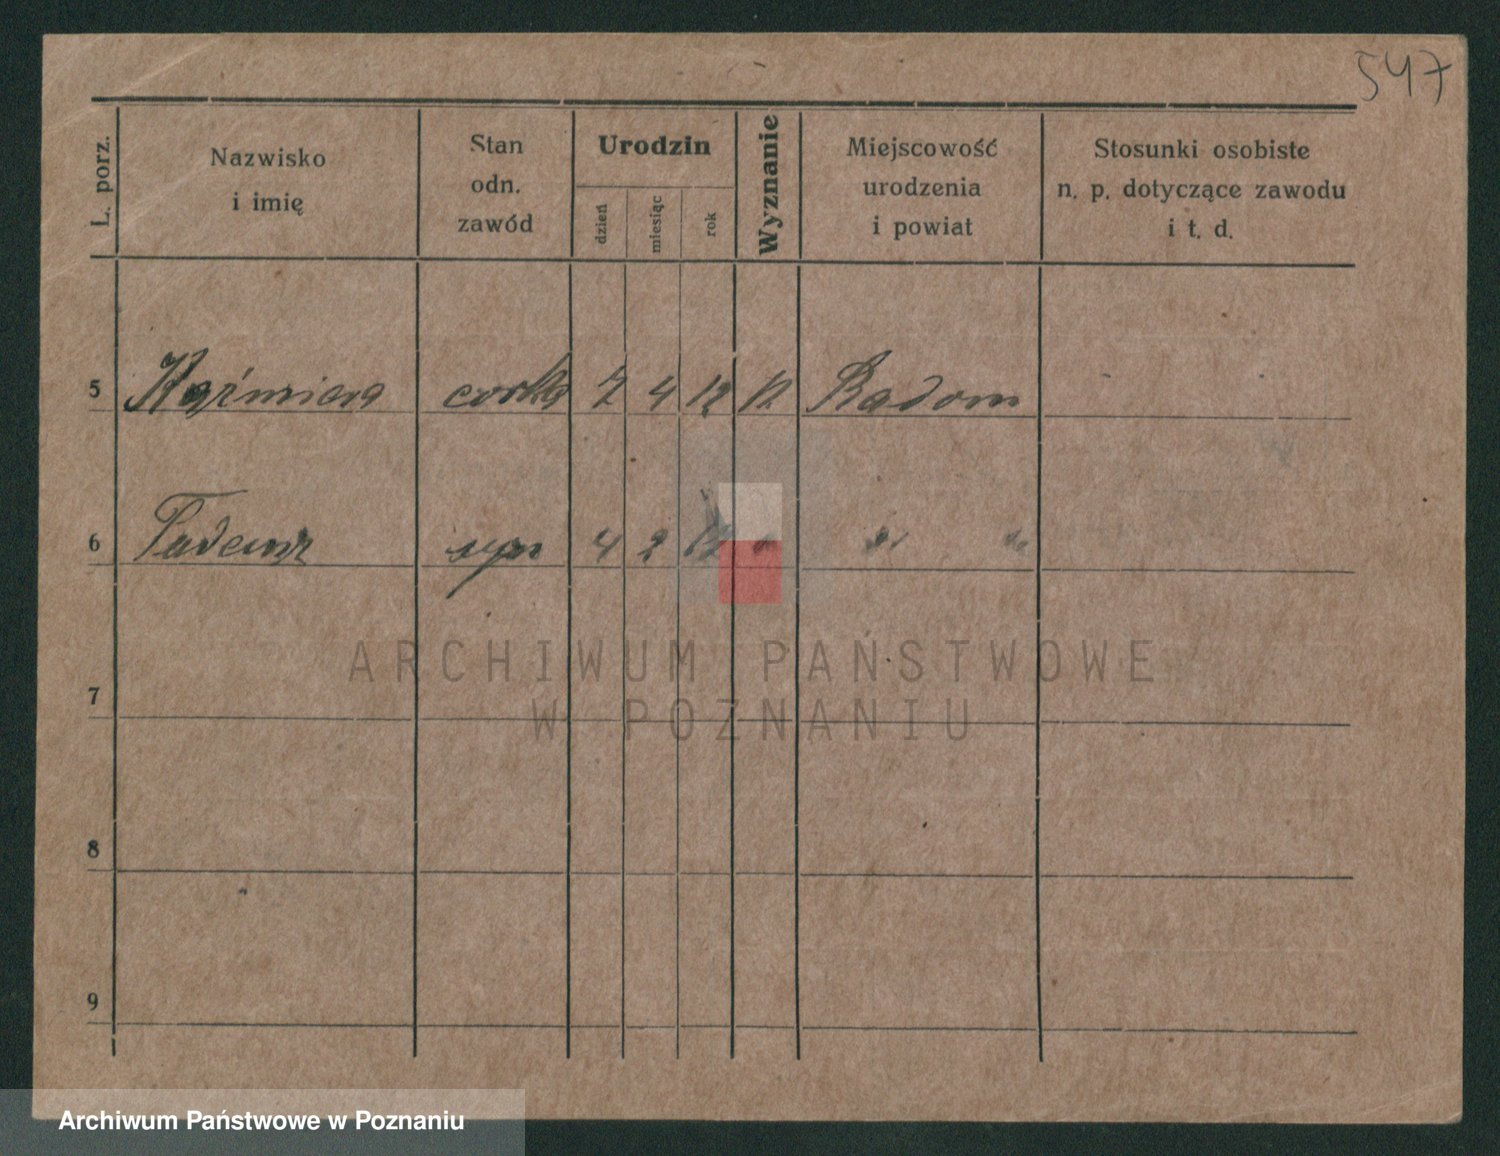 547
L. porz.
Nazwisko
i imię
Stan
odn.
zawód
Urodzin
dzień
miesiąc
rok
Wyznanie
Miejscowość
urodzenia
i powiat
Stosunki osobiste
n. p. dotyczące zawodu
i t. d.
5 Kaźmiera corka 7 4 12 Radom
6 Tadeusz syn 4 2 " " "
ARCHIWUM PAŃSTWOWE
W POZNANIU
7
8
9
Archiwum Państwowe w Poznaniu